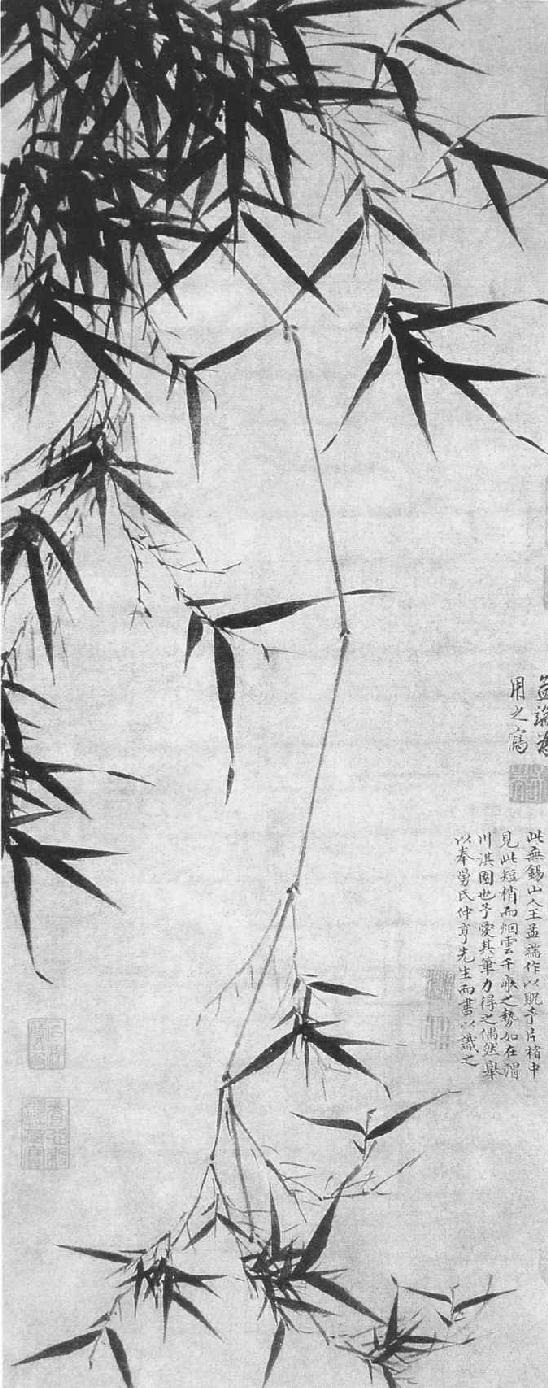 孟端為
用之寫
此無錫山人王孟端作以貺予片楮中
見此短梢而烟雲千畝之勢如在渭
川淇園也予愛其筆力得之偶然舉
以奉勞氏仲享先生而書以識之